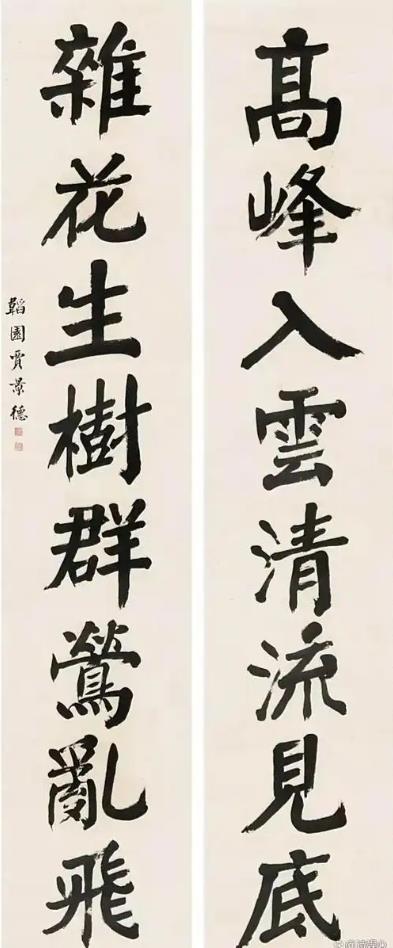 高峰入雲清流見底
雜花生樹群鶯亂飛
韜園賈景德